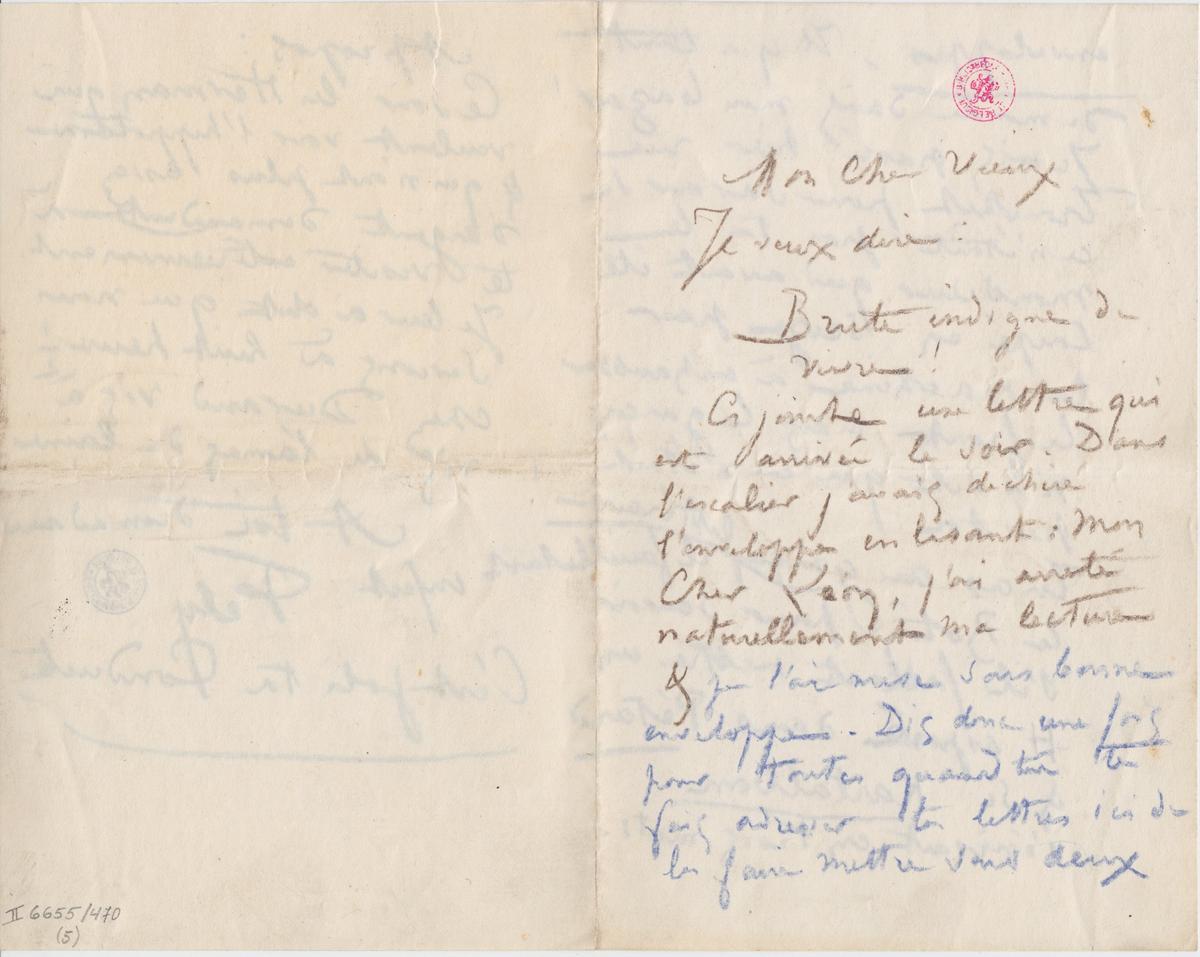 Mon Cher Vieux
Je veux dire :
Brute indigne de
vivre !
Ci jointe une lettre qui
est arrivée le soir. Dans
l'escalier j'avais déchiré
l'enveloppe en lisant : Mon
Cher Léon, j'ai arrêté
naturellement ma lecture
& je l'ai mise sous bonne
enveloppe. Dis donc une fois
pour toutes quand tu te
fais adresser tes lettres ici de
les faire mettre sous deux
II 6655/470
(5)